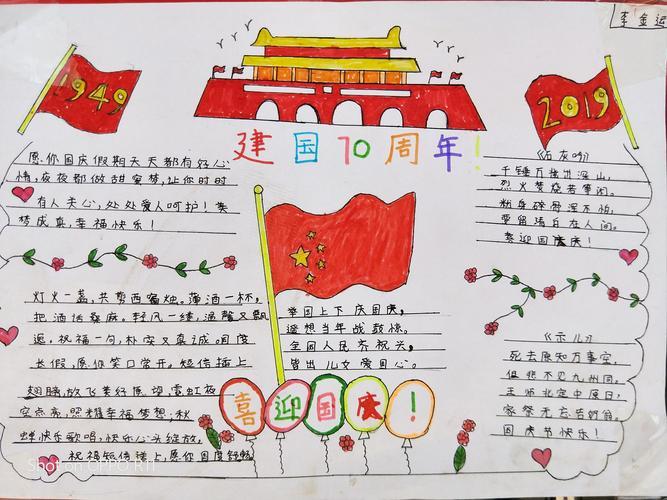 李金运
1949
2019
建国70周年!
愿你国庆假期天天都有好心
情，夜夜都做甜蜜梦，让你时时
有人关心，处处爱人呵护！美
梦成真，幸福快乐！
《石灰吟》
千锤万凿出深山，
烈火焚烧若等闲。
粉身碎骨浑不怕，
要留清白在人间。
喜迎国庆！
灯火一盏，共剪西窗烛。薄酒一杯，
把酒话桑麻。轻风一缕，温馨又飘
逸。祝福一句，朴实又真诚。国庆
长假，愿你笑口常开。短信插上
翅膀，放飞美好愿望，霓虹极
空点亮，照耀幸福梦想；秋
蝉快乐歌唱，快乐心头绽放。
祝福短信送上，愿你国庆舒畅
举国上下庆国庆，
遥想当年战鼓惊。
全国人民齐祝去，
皆出儿女爱国心。
《示儿》
死去原知万事空，
但悲不见九州同。
王师北定中原日，
家祭无忘告乃翁。
国庆节快乐！
喜迎国庆!
Shot on OPPO R11